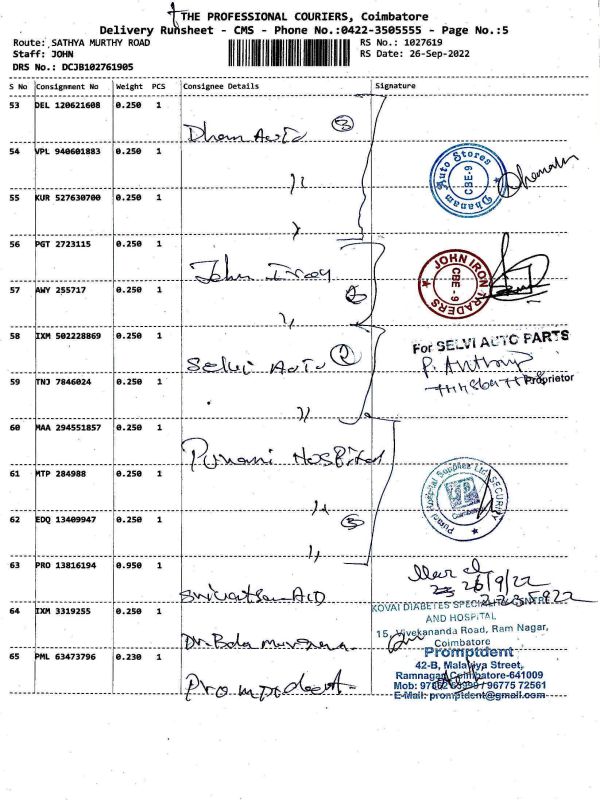 THE PROFESSIONAL COURIERS, Coimbatore
Delivery Runsheet - CMS - Phone No.:0422-3505555 - Page No.:5
Route: SATHYA MURTHY ROAD RS No.: 1027619
Staff: JOHN RS Date: 26-Sep-2022
DRS No.: DCJB102761905
S No Consignment No Weight PCS Consignee Details Signature
53 DEL 120621608 0.250 1
Dhan Auto 3
54 VPL 940601883 0.250 1
Dhanam Auto Stores CBE-9
55 KUR 527630700 0.250 1
56 PGT 2723115 0.250 1
John Iron
JOHN IRON TRADERS CBE - 9
57 AWY 255717 0.250 1
58 IXM 502228869 0.250 1
For SELVI AUTO PARTS
Selvi Auto 2
P. Anthony
Proprietor
59 TNJ 7846024 0.250 1
60 MAA 294551857 0.250 1
Hospital
61 MTP 284988 0.250 1
Hospital Supplies Ltd SECURITY
Coimbatore
62 EDQ 13409947 0.250 1
3
63 PRO 13816194 0.950 1
26/9/22
KOVAI DIABETES SPECIALITY CENTRE
AND HOSPITAL
64 IXM 3319255 0.250 1
15, Vivekananda Road, Ram Nagar,
Coimbatore
Dr. Bala
65 PML 63473796 0.230 1
Promptdent
42-B, Malaviya Street,
Ramnagar, Coimbatore-641009
Mob: / 96775 72561
E-Mail: promptdent@gmail.com
Promptdent